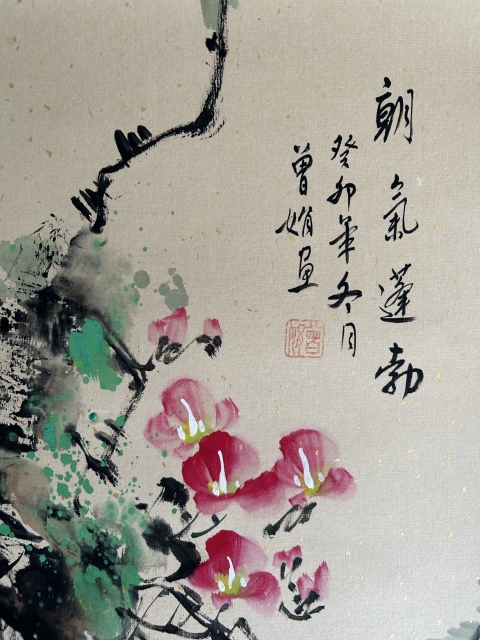 朝氣蓬勃
癸卯年冬月
曾娟画